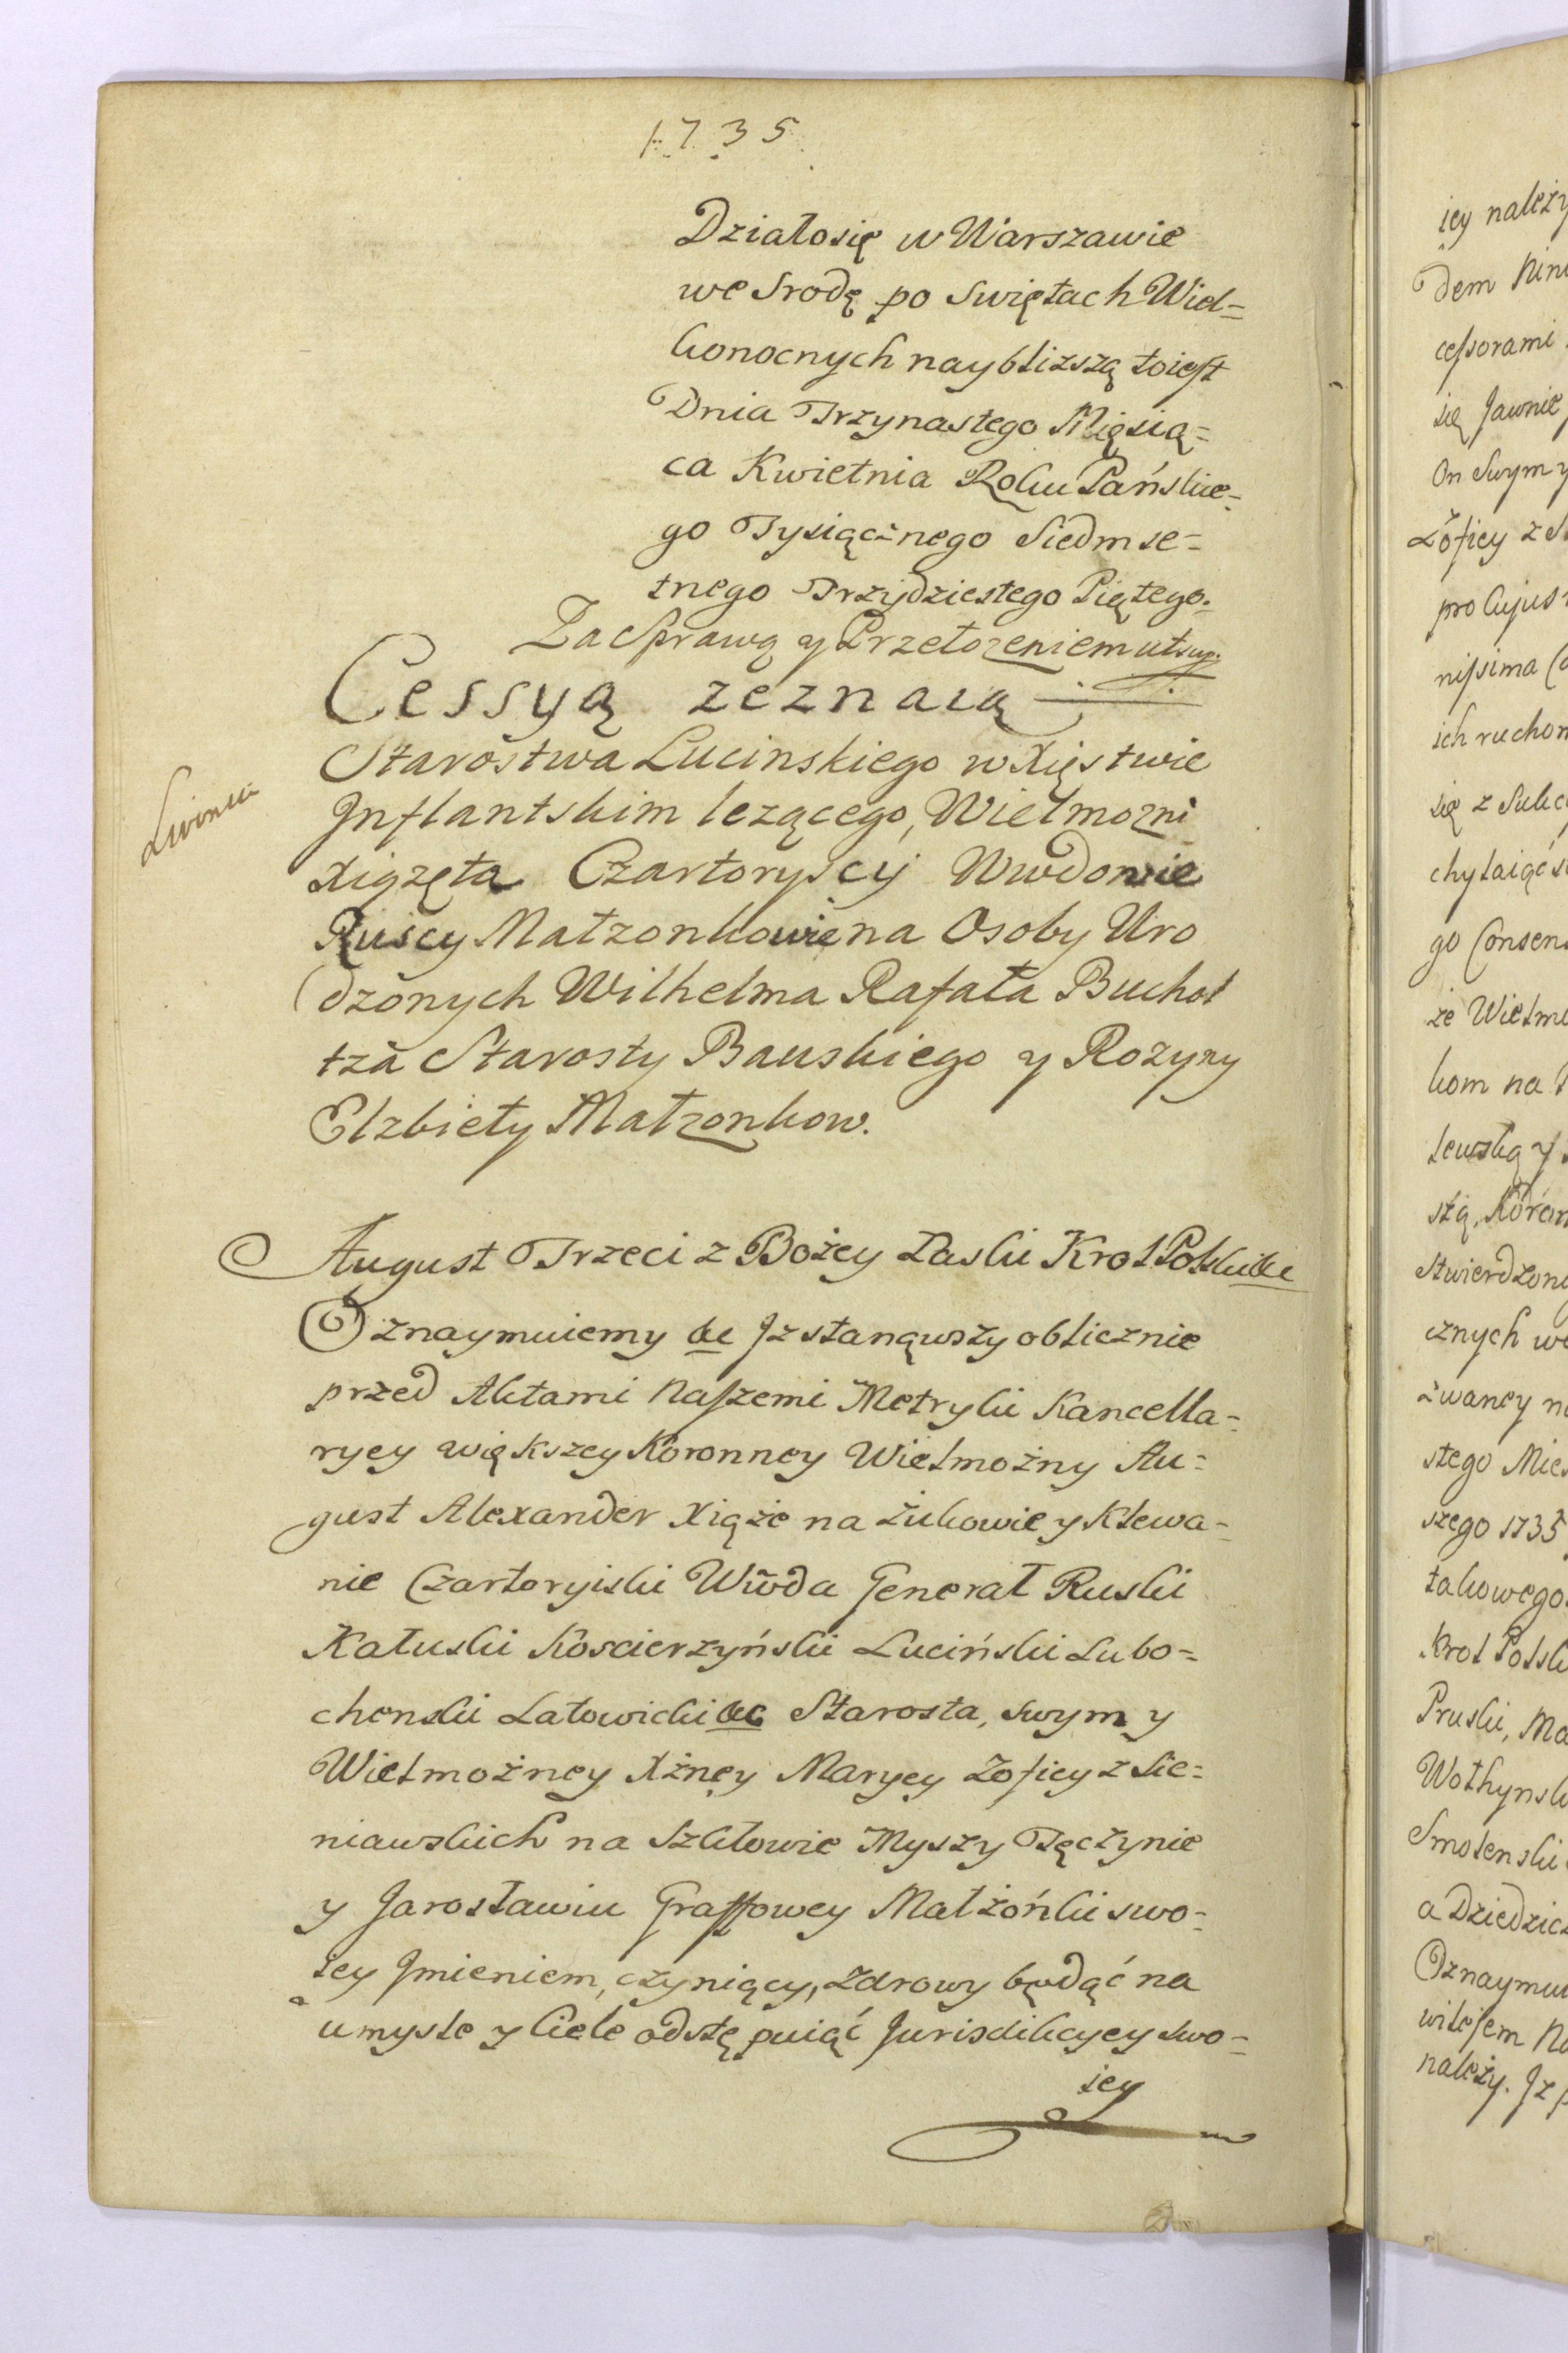 1735
Działosię w Warszawie
we Srodę po Swiętach Wiel=
konocnych nayblizszą toiest
Dnia Trzynastego Mięsią=
ca Kwietnia Roku Pańskie=
go Tysiącznego Siedmse=
tnego Trzydziestego Piątego.
Za Sprawą y Przełozeniem utsup.
Cessyą zeznaią
Starostwa Lucinskiego w Xięstwie
Inflantskim lezącego, Wielmozni
Xiązęta Czartoryscy Wwdowie
Ruscy Małzonkowie na Osoby Uro
dzonych Wilhelma Rafała Buchol
tza Starosty Bauskiego y Rozyny
Elzbiety Małzonkow.
August Trzeci z Bożey Łaski Krol Polski &c
Oznaymuiemy &c Jz stanąwszy oblicznie
przed Aktami Naszemi Metryki Kancella=
ryey większey Koronney Wielmożny Au=
gust Alexander Xiąże na Żukowie y Klewa=
nie Czartoryiski Wwda Generał Ruski
Kałuski Koscierzyński Luciński Lubo=
chenski Latowicki &c Starosta, swym y
Wielmożney Xżney Maryey Zofiey z Sie=
niawskich na Szkłowie Myszy Tęczynie
y Jarosławiu Graffowey Małżońki swo=
iey Jmieniem, czyniący, zdrowy będąć na
umysle y Ciele odstępuiąć Jurisdikcyey swo=
iey
iey należy
dem
cessorami
się Jawnie
On Swym y
Zofiey z S
pro cujus
nissima
ich ruchom
się z Sukc
chylaiąć s
go Consen
że Wielm
kom na
lewską y
stą,
Stwierdzon
cznych we
zwaney n
stego Mies
szego 1735
takowego
Krol Polsk
Pruski, Ma
Wołhynsk
Smolenski
a Dziedzic
Oznaymu
wilejem Na
należy. Jz